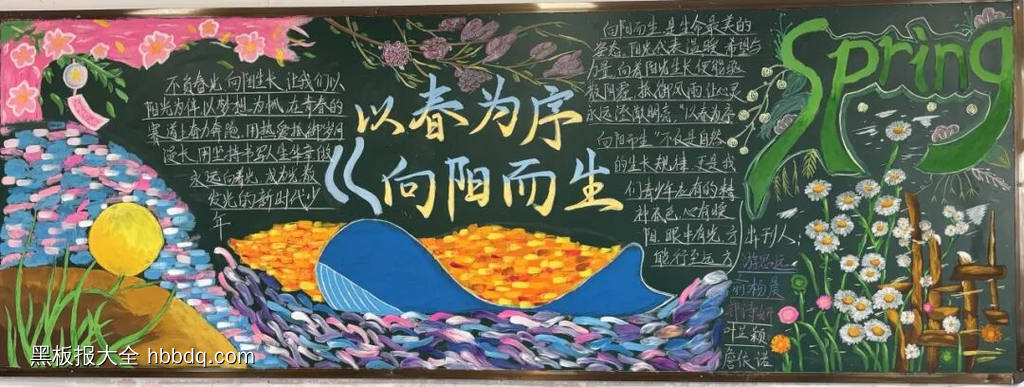 不负春光,向阳生长,让我们以
阳光为伴,以梦想为帆,在青春的
赛道上奋力奔跑,用热爱抵御岁月
漫长,用坚持书写人生华章,做
永远向阳,成长散
发光的新时代少
年
以春为序
向阳而生
向阳而生,是生命最美的
姿态,阳光代表温暖、希望与
力量,向着阳光生长,便能驱
散阴霾,抵御风雨,让心灵
永远澄澈明亮。"以春为序
向阳而生"不仅是自然
的生长规律,更是我
们青少年应有的精
神本色,心有暖
阳,眼中有光,方
能行至远方
Spring
出刊人:
杨晨
颖
詹依诺
黑板报大全 hbbdq.com